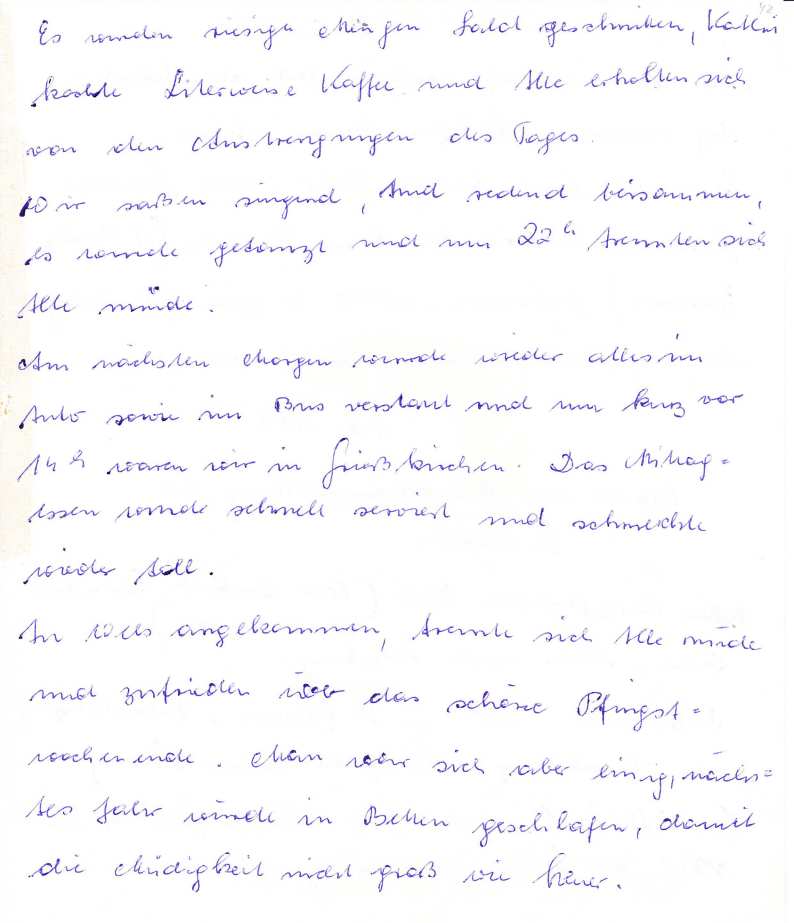 12
Es wurden riesige Mengen Salat geschnitten, Kathi
kochte Literweise Kaffee und Alle erholten sich
von den Anstrengungen des Tages.
Wir saßen singend, und redend beisammen,
es wurde getanzt und um 22 h trennten sich
Alle müde.
Am nächsten Morgen wurde wieder alles im
Auto sowie im Bus verstaut und um kurz vor
14 h waren wir in Grießkirchen. Das Mittag=
essen wurde schnell serviert und schmeckte
wieder toll.
In Wels angekommen, trennte sich Alle müde
und zufrieden über das schöne Pfingst=
wochenende. Man war sich aber einig, näch=
stes Jahr würde in Betten geschlafen, damit
die Müdigkeit nicht groß wie heuer.